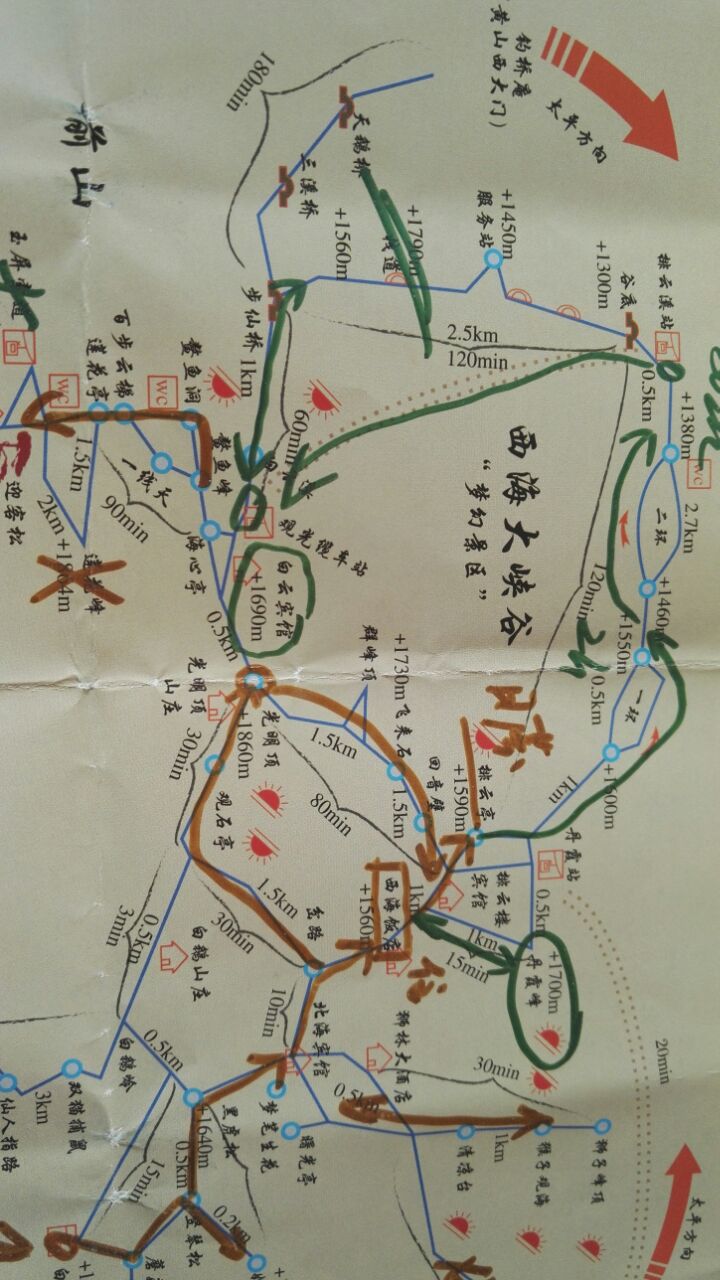 钓桥庵
(黄山西大门)
太平方向
180min
天鹅桥
三溪桥
前山
+1450m
服务站
+1790m
栈道
+1560m
+1300m
谷底
排云溪站
步仙桥
1km
2.5km
120min
0.5km
+1380m
WC
2.7km
二环
+1460m
+1550m
一环
0.5km
+1600m
1km
120min
2h
60min
西海大峡谷
“梦幻景区”
玉屏
百步云梯
莲花亭
WC
WC
鳌鱼洞
鳌鱼峰
一线天
1.5km
2km
90min
迎客松
莲花峰
+1864m
海心亭
观光缆车站
白云宾馆
+1690m
0.5km
光明顶
山庄
光明顶
+1860m
群峰顶
+1730m
飞来石
1.5km
1.5km
回音壁
80min
日落
排云亭
+1590m
丹霞站
排云楼
宾馆
0.5km
1km
15min
丹霞峰
+1700m
西海饭店
+1560m
1km
住
30min
观石亭
1.5km
30min
岔路
白鹅山庄
0.5km
3min
10min
北海宾馆
狮林大酒店
30min
20min
0.5km
白鹅岭
0.5km
双猫捕鼠
3km
仙人指路
黑虎松
+1640m
0.5km
梦笔生花
曙光亭
清凉台
1km
猴子观海
狮子峰顶
15min
竖琴松
0.2km
太平方向